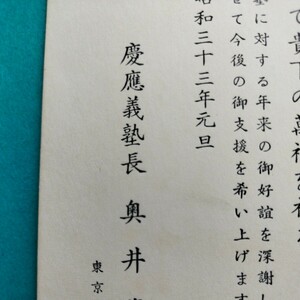 て貴下の萬福を祈
塾に対する年来の御好誼を深謝し
せて今後の御支援を希い上げます
昭和三十三年元旦
慶應義塾長 奥井
東京